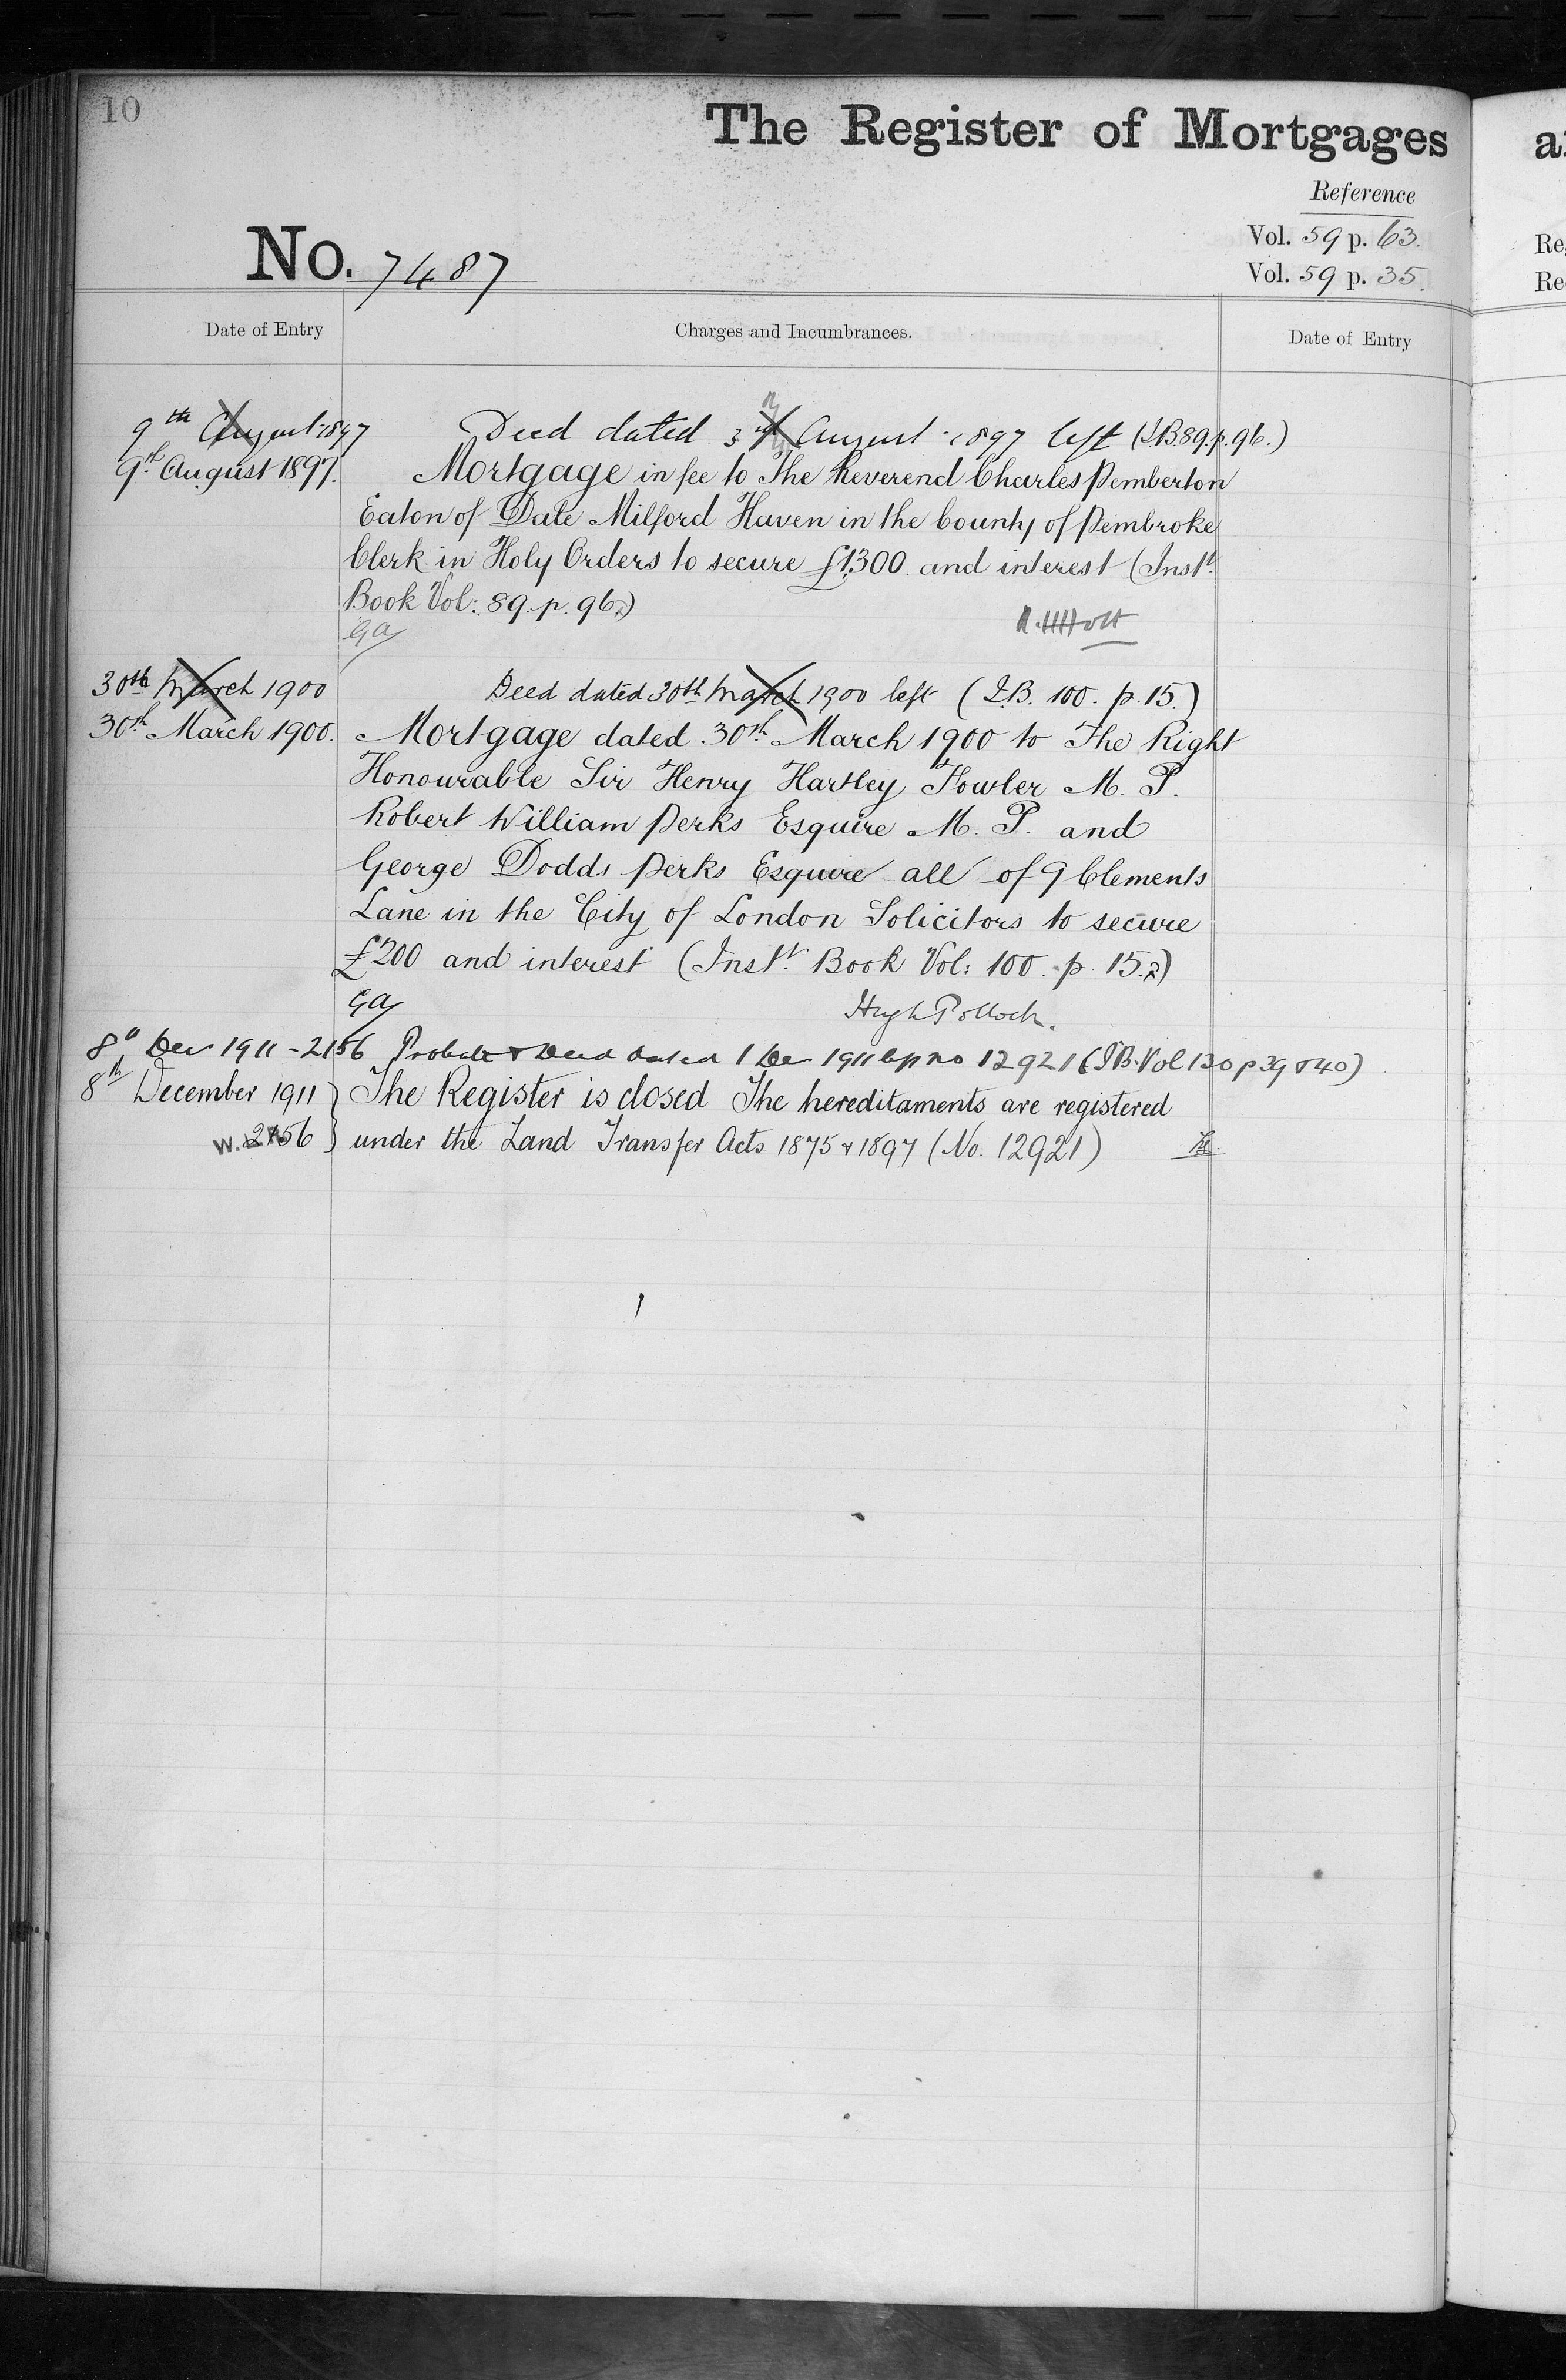 10
The Register of Mortgages
Reference
Vol. 59 p. 63.
Vol. 59 p. 35.
No. 7487
Date of Entry
Charges and Incumbrances.
Date of Entry
9th August 1897
Deed dated 3 August 1897 left (I.B. 89. p. 96.)
9th August 1897.
Mortgage in fee to The Reverend Charles Pemberton
Eaton of Dale Milford Haven in the County of Pembroke
Clerk in Holy Orders to secure £1300. and interest (Instt
Book Vol: 89. p. 96.)
GA
30th March 1900
Deed dated 30th March 1900 left (I.B. 100. p. 15.)
30th March 1900.
Mortgage dated 30th March 1900 to The Right
Honourable Sir Henry Hartley Fowler M. P.
Robert William Perks Esquire M. P. and
George Dodds Perks Esquire all of 9 Clements
Lane in the City of London Solicitors to secure
£200 and interest (Instt Book Vol: 100. p. 15.)
GA
Hugh Pollock.
8th Dec 1911 - 2156 Probate & Deed dated 1 Dec 1911 no 12921 (I.B. Vol 130 p 39 & 40)
8th December 1911
The Register is closed The hereditaments are registered
W. 2156
under the Land Transfer Acts 1875 & 1897 (No. 12921)
a
Re
Re